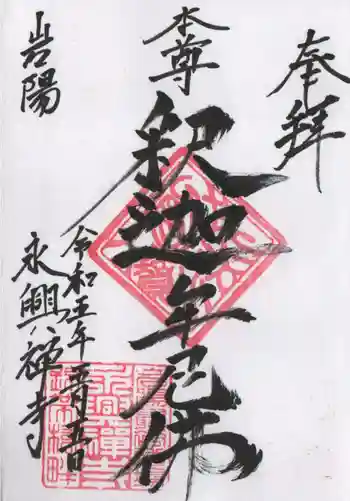 奉拝
本尊
釈迦牟尼佛
岩陽
令和五年五月五日
永興禅寺